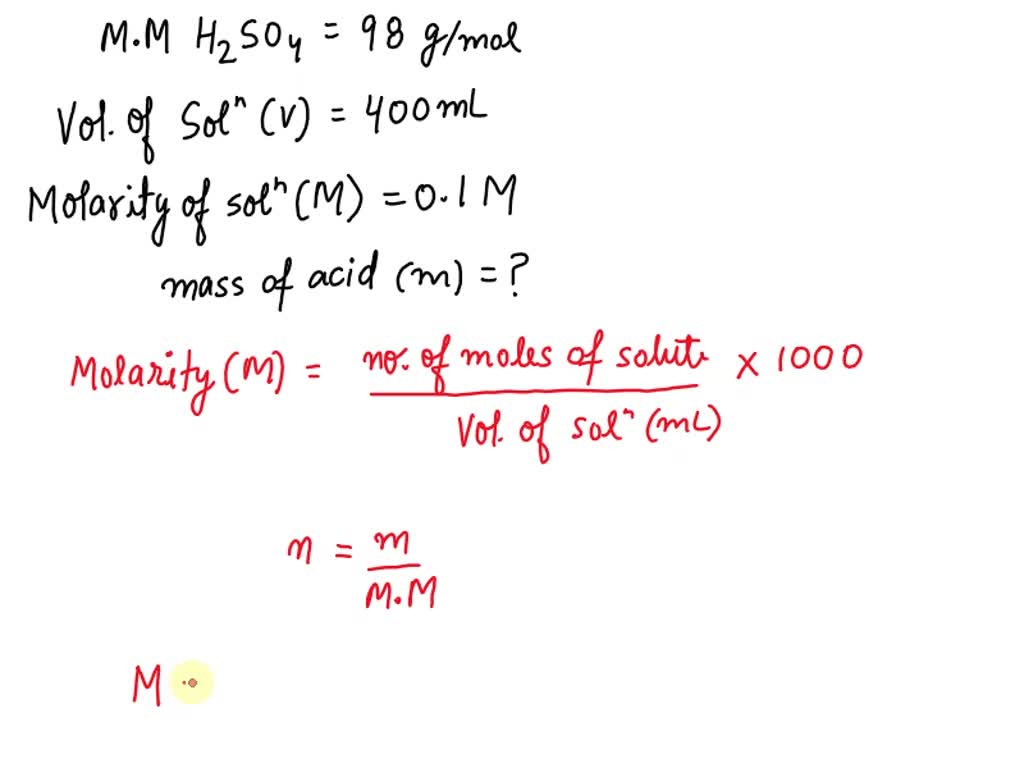 M.M H₂SO₄ = 98 g/mol
Vol. of Solⁿ (V) = 400 mL
Molarity of solⁿ (M) = 0.1 M
mass of acid (m) = ?
Molarity (M) = no. of moles of solute × 1000
Vol. of solⁿ (mL)
n = m
M.M
M